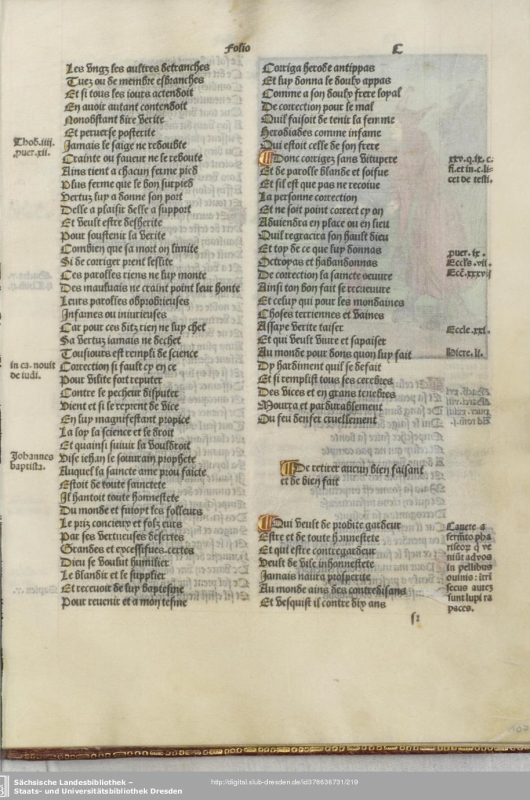 Folio C
Les vngz les aultres detranches
Tuez ou de membre esbranches
Et si tous les iours actendoit
En auoir autant contendoit
Nonobstant dire verite
Et peruerse posterite
Jamais le saige ne redoubte
Crainte ou faueur ne le reboute
Ains tient a chacun ferme pied
Plus ferme que le bon surpied
Vertuz luy a donne son port
Delle a plaisir delle a support
Et veult estre desherite
Pour soustenir la verite
Combien que sa mort on limite
Si de corriger prent leslite
Ces parolles riens ne luy monte
Des mauluais ne craint point leur honte
Leurs parolles obprobrieuses
Infames ou iniurieuses
Car pour ces ditz rien ne luy chet
Sa vertuz iamais ne dechet
Tousiours est rempli de science
Correction si fault cy en ce
Pour vilite fort reputer
Contre le pecheur disputer
Vient et si le reprent de vice
En luy magnifestant propice
La loy la science et le droit
Et quainsi suiuir la vouldroit
Dist iehan le souuerain prophete
Auquel la saincte ame prou faicte
Estoit de toute sainctete
Il hantoit toute honnestete
Du monde et fuiopt les folleurs
Le prix concieux et folz eurs
Par ses vertueuses desertes
Grandes et excessifues certes
Dieu se voulut humilier
Le blandit et le supplier
Et receuoir de luy baptesme
Pour reuenir et a mon tesme
Thob.iiii.
puer.xii.
in ca. nouit
de iudi.
Johannes
baptista.
Corriga herode antippas
Et luy donna le doulx appas
Comme a son doulx frere loyal
De correction pour le mal
Quil faisoit de tenir la femme
Herodiades comme infame
Qui estoit celle de son frere
Donc corrigez sans vitupere
Et de parolle blande et soifue
Et sil est que pas ne recoiue
La personne correction
Et ne soit point correct cy on
Aduiendra en place ou en lieu
Quil regracira son hault dieu
Et toy de ce que luy donnas
Octroyas et habandonnas
De correction sa saincte oeuure
Ainsi ton bon fait se recueuure
Et celuy qui pour les mondaines
Choses terriennes et vaines
Assaye verite taiser
Et qui veult viure et sapaiser
Au monde pour dons quon luy fait
Dy hardiment quil se defait
Et si remplist tous ses cerebres
Des vices et en grans tenebres
Mourra et pardurablement
Du feu denfer cruellement
De retirer aucun bien faisant
et de bien fait
Qui veult de probite gardeur
Estre et de toute honnestete
Et qui estre contregardeur
Veult de vile inhonnestete
Jamais naura prosperite
Au monde ains des contredisans
Et vesquist il contre dix ans
xxv.q.ix. c.
fi.et in c.li-
cet de testi.
puer. ix.
Eccls. vii.
Ecc̃.xxxvii
Eccle.xxi.
Hiere.li.
Cauete a
fermẽto pha
riseoꝝ q̃ ve
niũt ad vos
in pellibus
ouiuio: ĩtri
secus autẽ
sunt lupi ra
paces.
s1
Sächsische Landesbibliothek –
Staats- und Universitätsbibliothek Dresden
http://digital.slub-dresden.de/id378636731/219